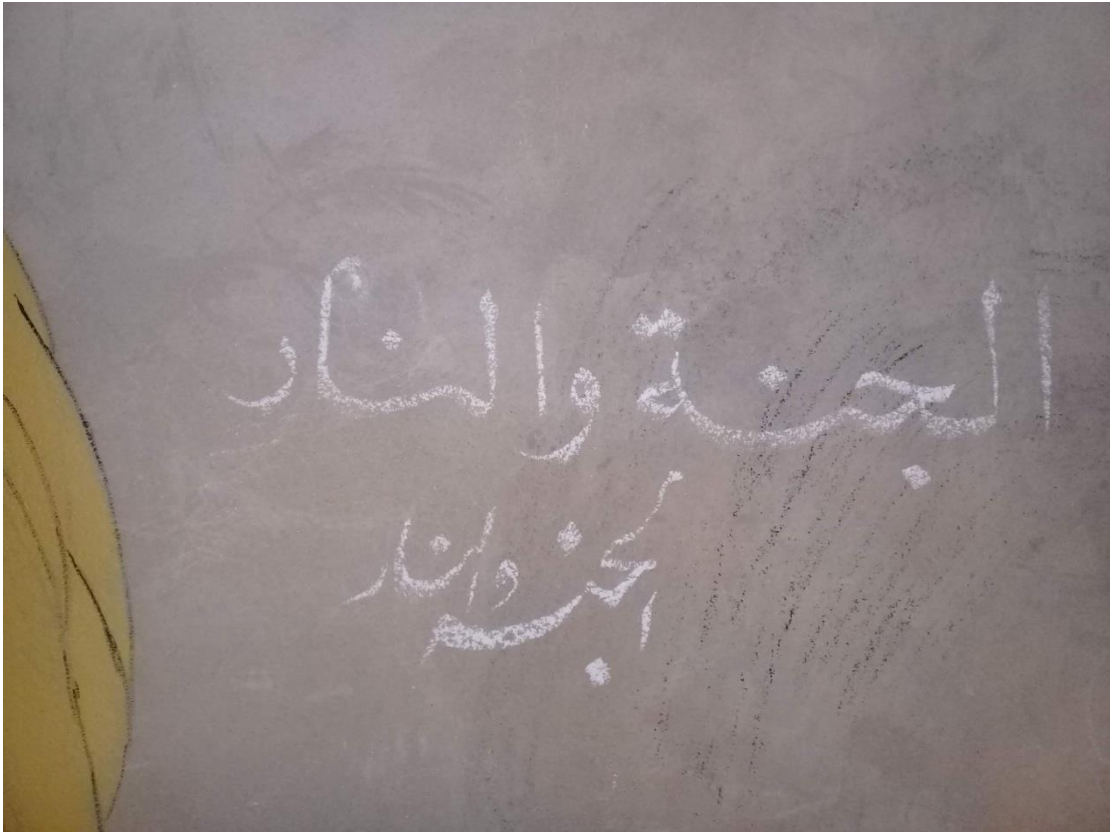 الجنة والنار
الجنه والنار